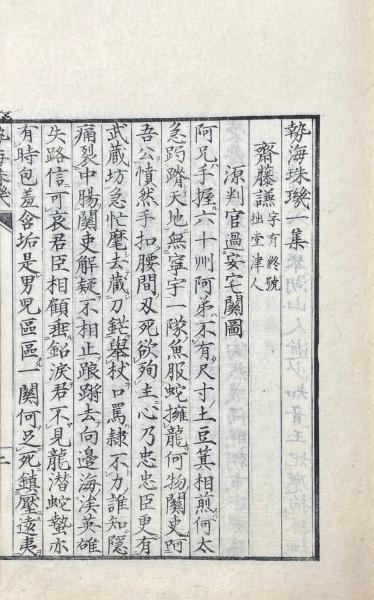 勢海珠璣一集
齋藤謙 字有終號拙堂津人
源判官過安宅關圖
阿兄手握六十州阿弟不有尺寸土豆箕相煎何太
急跼蹐天地無寧宇一隊魚服蛇擁龍何物關吏呵
吾公憤然手扣腰間刃死欲殉主心乃忠忠臣更有
武蔵坊急忙麾去蔵刀鋩擧杖口罵隷不力誰知隱
痛裂中腸關吏解疑不相止踉蹡去向邊海涘英雄
失路信可哀君臣相顧垂鉛淚君不見龍潜蛇蟄亦
有時包羞含垢是男兒區區一關何足死鎮壓遠夷